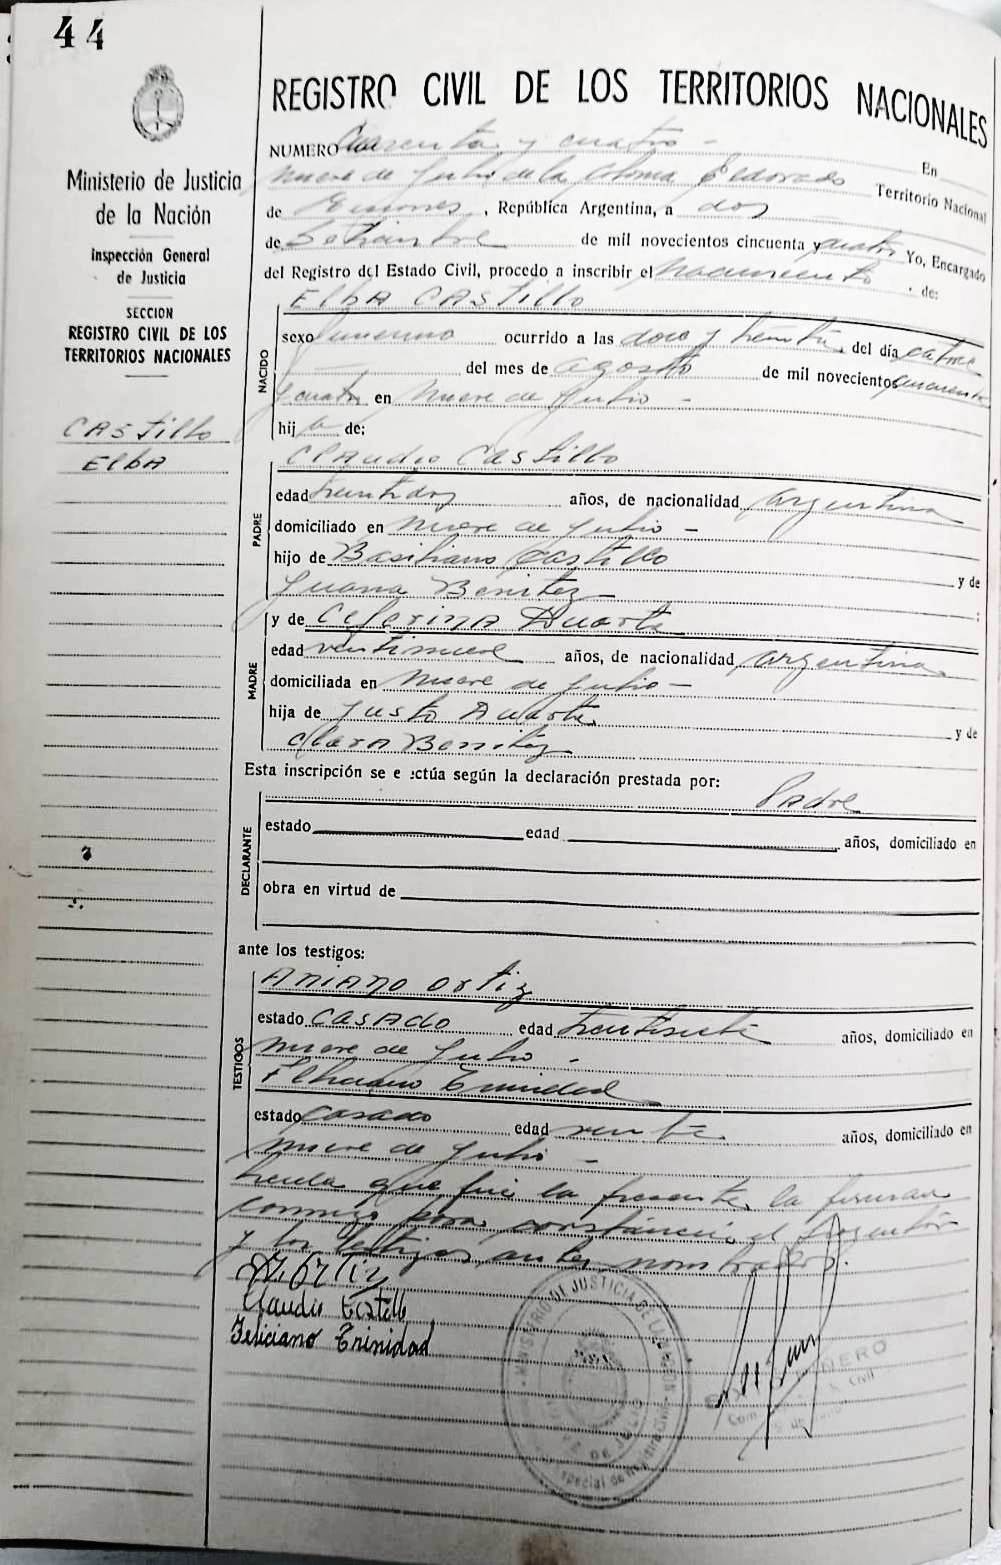 44
REGISTRO CIVIL DE LOS TERRITORIOS NACIONALES
Ministerio de Justicia
de la Nación
Inspección General
de Justicia
SECCION
REGISTRO CIVIL DE LOS
TERRITORIOS NACIONALES
CASTILLO
ELBA
NUMERO Cuarenta y cuatro - En
Nueve de Julio de la Colonia Eldorado Territorio Nacional
de Misiones, República Argentina, a dos
de Setiembre de mil novecientos cincuenta y cuatro Yo, Encargado
del Registro del Estado Civil, procedo a inscribir el nacimiento de:
NACIDO
ELBA CASTILLO
sexo femenino ocurrido a las doce y treinta, del día catorce
del mes de agosto de mil novecientos cincuenta
y cuatro en Nueve de Julio -
hij a de:
PADRE
Claudio Castillo
edad treintidos años, de nacionalidad argentina
domiciliado en Nueve de Julio -
hijo de Basiliano Castillo y de
Juana Benitez ;
MADRE
y de Ceferina Duarte
edad veintinueve años, de nacionalidad argentina
domiciliada en Nueve de Julio -
hija de Justo Duarte y de
Clara Benitez
Esta inscripción se e ectúa según la declaración prestada por:
Padre
DECLARANTE
estado edad años, domiciliado en
obra en virtud de
ante los testigos:
TESTIGOS
Aniano Ortiz
estado CASADO edad treintisiete años, domiciliado en
Nueve de Julio -
Feliciano Trinidad
estado casado edad veinte años, domiciliado en
Nueve de Julio -
Leida que fué la presente, la firman
conmigo para constancia el
y los testigos antes nombrados.
Ortiz
Claudio Castillo
Feliciano Trinidad
MINISTERIO DE JUSTICIA DE LA NACION
9 DE JULIO